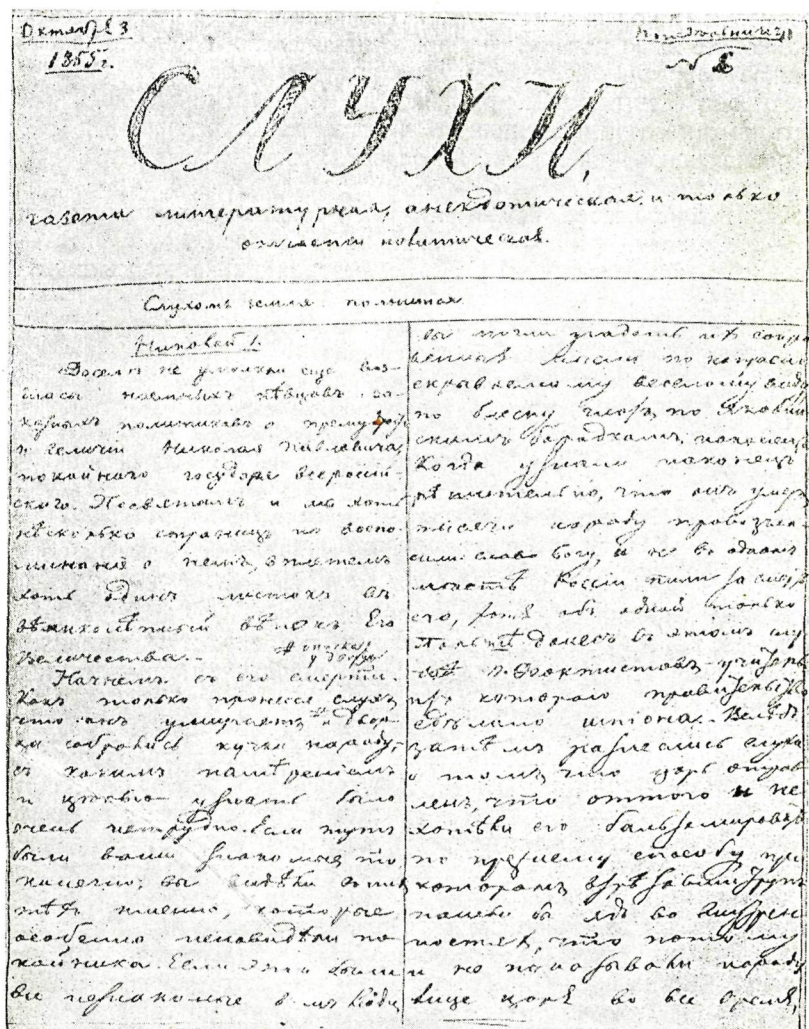 Октября 3
1855 г.
Понедѣльникъ
№ 6
СЛУХИ,
газета литературная, анекдотическая и только
отчасти политическая.
Слухомъ земля полнится
Николай I.
Доселѣ не умолкли еще воз-
гласы наемныхъ пѣвцовъ за-
полтинниковъ о
и величіи Николая Павловича,
покойнаго государя всероссій-
скаго. Посвятимъ и мы хоть
нѣсколько страницъ на воспо-
минанія о немъ, вплетемъ
хоть одинъ листокъ въ
великолѣпный вѣнокъ Его
Величества.
Начнемъ съ его смерти.
Какъ только пронесся слухъ
что онъ умираетъ, у двор-
ца собрались кучки народу;
съ какимъ намѣреніемъ
и цѣлью узнать было
очень нетрудно. Если тутъ
были ваши знакомые то
конечно, вы видѣли
тѣхъ именно, которые
особенно ненавидѣли по-
койника. Если это были
вы незнакомые люди
вы могли угадать ихъ сокро-
венныя мысли по напрасно
скрываемому веселому виду
по блеску глазъ, по
скимъ бородкамъ, наконецъ
Когда узнали наконецъ
рѣшительно, что онъ умеръ
тысячи народу провозгла-
сили слава Богу, и не въ одномъ
мѣстѣ Россіи пили за смерть
его, хотя объ одной только
Польшѣ донесъ въ этомъ слу-
чаѣ г. Феоктистовъ - учитель
изъ котораго правительство
сдѣлало шпіона. Вслѣдъ
затѣмъ разнеслись слухи
о томъ, что царь отрав-
ленъ, что оттого и не
хотѣли его бальзамировать
по прежнему способу при
которомъ взрѣзавши трупъ
нашли бы ядъ во внутрен-
ностяхъ, что потому
и не показывали народу
лице царя во все время,